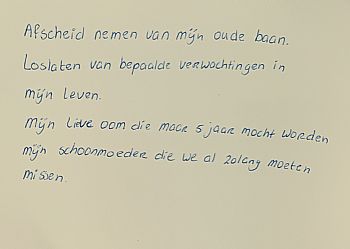 Afscheid nemen van mijn oude baan.
Loslaten van bepaalde verwachtingen in
mijn leven.
Mijn lieve oom die maar 5 jaar mocht worden
mijn schoonmoeder die we al zolang moeten
missen.